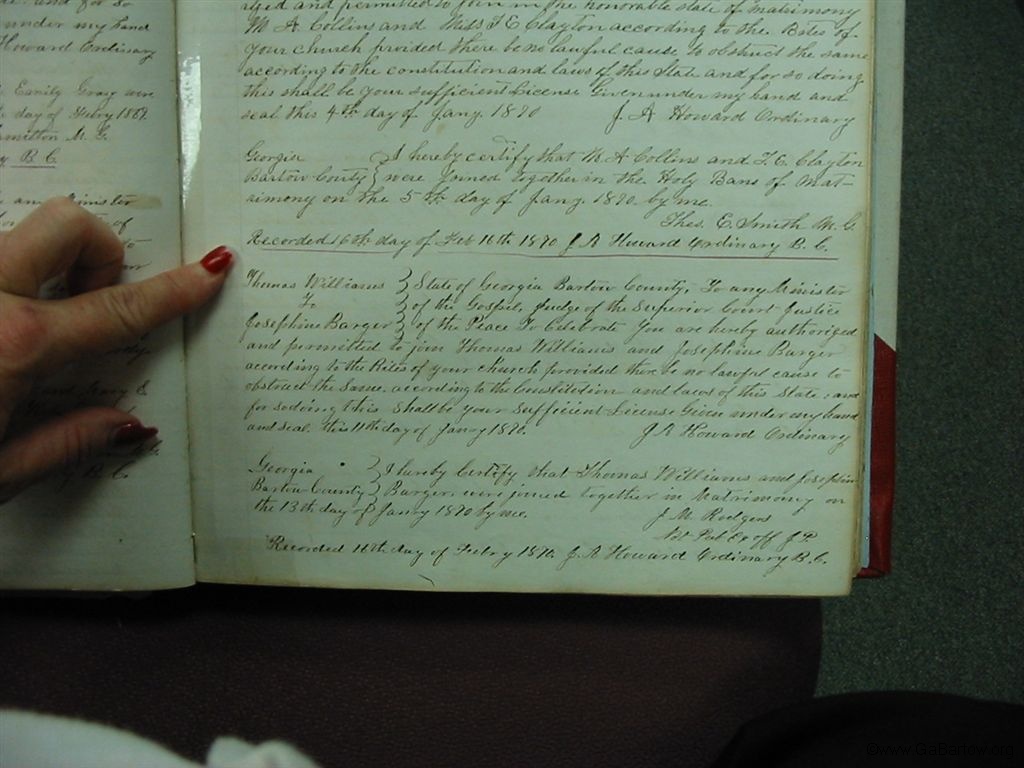 and for so
under my hand
Howard Ordinary
Emily Gray were
day of Febry 1867
Hamilton M. G.
B. C.
Minister
of
and permitted to join in the honorable state of matrimony
M A Collins and Miss F E Clayton according to the Rites of
your church provided there be no lawful cause to obstruct the same
according to the constitution and laws of this State and for so doing
this shall be your sufficient License Given under my hand and
seal this 4th day of Jany. 1870 J. A Howard Ordinary
Georgia } I hereby certify that M A Collins and F. E. Clayton
Bartow County } were Joined together in the Holy Bans of Mat-
rimony on the 5th day of Jany. 1870. by me.
Thos. E. Smith M. G.
Recorded 16th day of Feb 16th 1870 J. A Howard Ordinary B. C.
Thomas Williams } State of Georgia Bartow County, To any Minister
To } of the Gospel, Judge of the Superior Court Justice
Josephine Barger } of the Peace To Celebrate You are hereby authorized
and permitted to join Thomas Williams and Josephine Barger
according to the Rites of your church provided there be no lawful cause to
obstruct the same according to the Constitution and laws of this State, and
for so doing this shall be your sufficient License Given under my hand
and seal. this 11th day of Janry 1870. J A Howard Ordinary
Georgia } I hereby Certify that Thomas Williams and Josephine
Bartow County } Barger were joined together in Matrimony on
the 13th day of Janry 1870 by me. J. M. Rodgers
Not Pub Ex off J. P.
Recorded 16th day of Febry 1870 J. A Howard Ordinary B. C.
©www.GaBartow.org